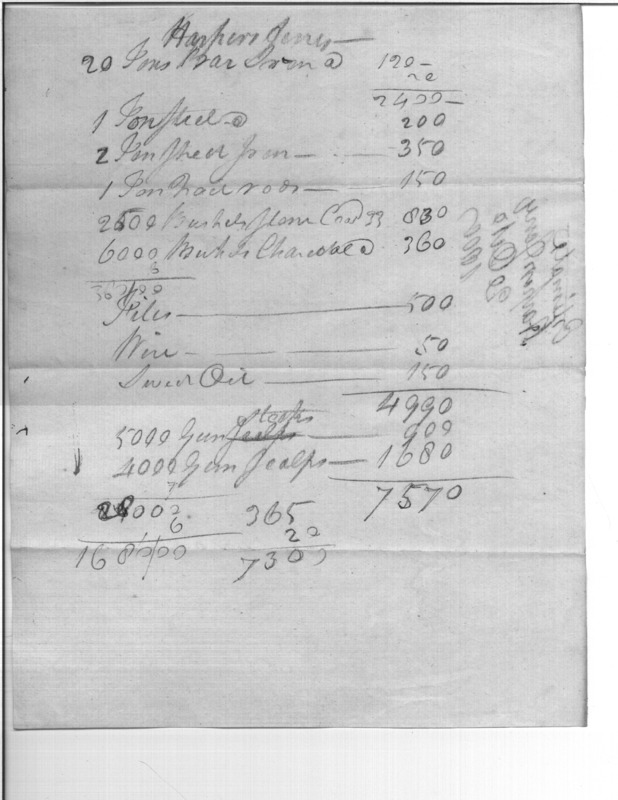 Harpers Ferry —
20 Tons Bar Iron @ 120 —
20
2400 —
1 Ton Steel @ 200
2 Ton Sheet Iron — 350
1 Ton Nail rods — 150
2500 Bushels Stone Coal 33 830
6000 Bushels Charcoal @ 360
6
36000
Files — 500
Wire — 50
Sweet Oil — 150
4990
Stocks
5000 Gun Scalps — 900
4000 Gun Scalps — 1680
7570
7
28000
6
168000
365
20
7300
Estimate
Harpers Ferry